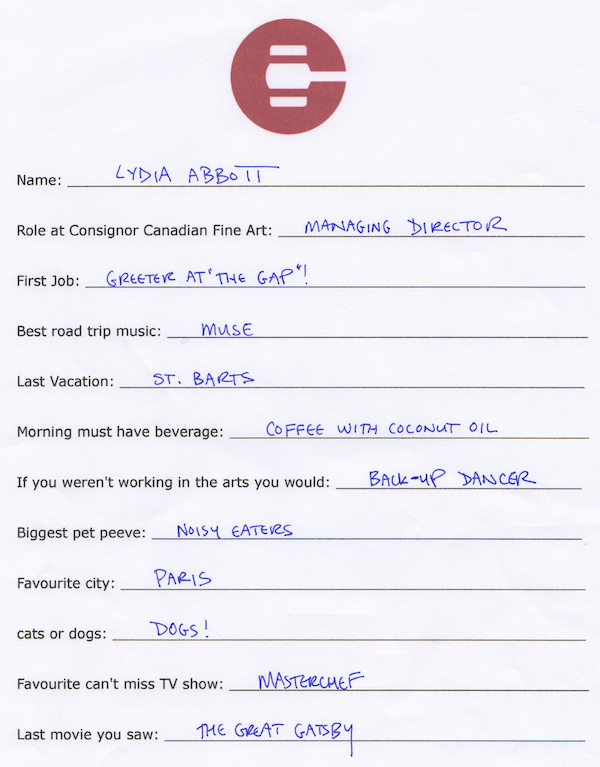 Name: LYDIA ABBOTT
Role at Consignor Canadian Fine Art: MANAGING DIRECTOR
First Job: GREETER AT "THE GAP"!
Best road trip music: MUSE
Last Vacation: ST. BARTS
Morning must have beverage: COFFEE WITH COCONUT OIL
If you weren't working in the arts you would: BACK-UP DANCER
Biggest pet peeve: NOISY EATERS
Favourite city: PARIS
cats or dogs: DOGS!
Favourite can't miss TV show: MASTERCHEF
Last movie you saw: THE GREAT GATSBY